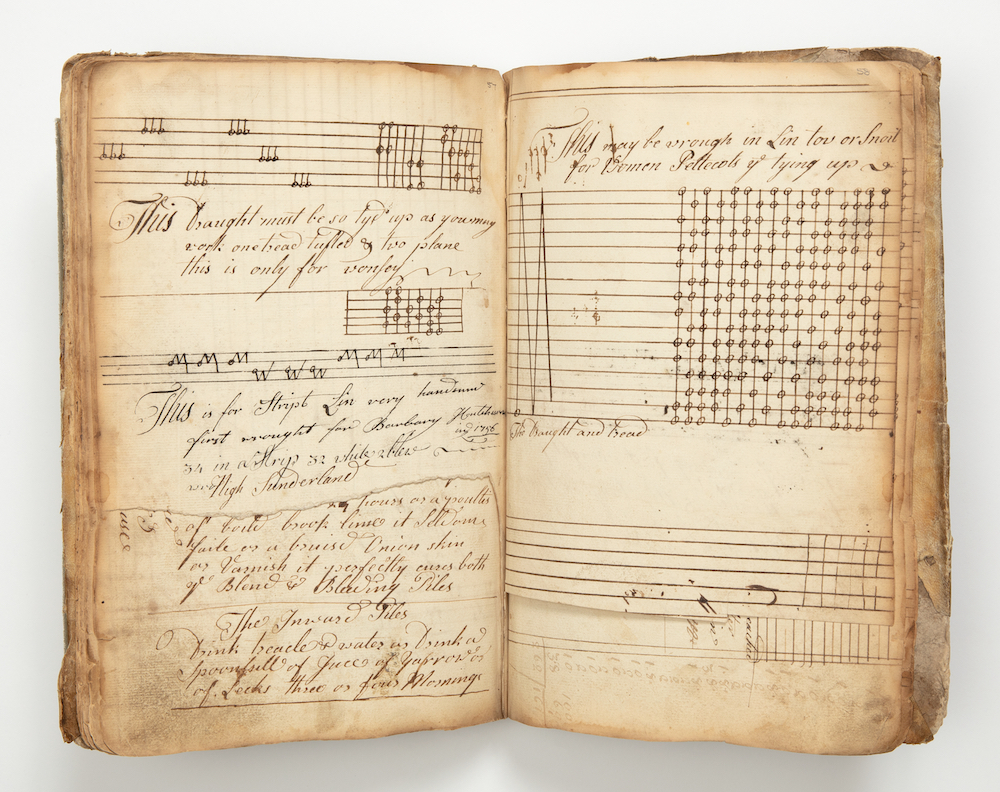 57
This Draught must be so tyd up as you may
work one tread tufted & two plane
this is only for
This is for Stript Lin very handsum
first wrought for Barbary
in 1756
34 in a Strip 32 white 2 blew
High Sunderland
hours or a poultis
of boild brook lime it Seldom
faile or a bruisd Onion skin
or Varnish it perfectly cures both
ye Blend & Bleading Piles
The Inward Piles
Drink treacle & water or Drink a
Spoonfull of Juce of Yarrow or
of Leeks three or four Mornings
58
This may be wrough in Lin tow or
for Women Pettecots ye tying up
The Draught and tread